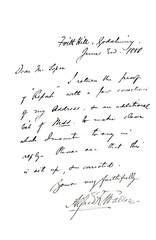 Frith Hill, Godalming
June 3rd. 1888
Dear Mr.
I return the proof
of Report with a few corrections
of my Address, & an additional
bit of MSS. to make clear
what I meant to say in
reply. Please see that this
is set up, & corrected.
Yours very faithfully
Alfred R. Wallace